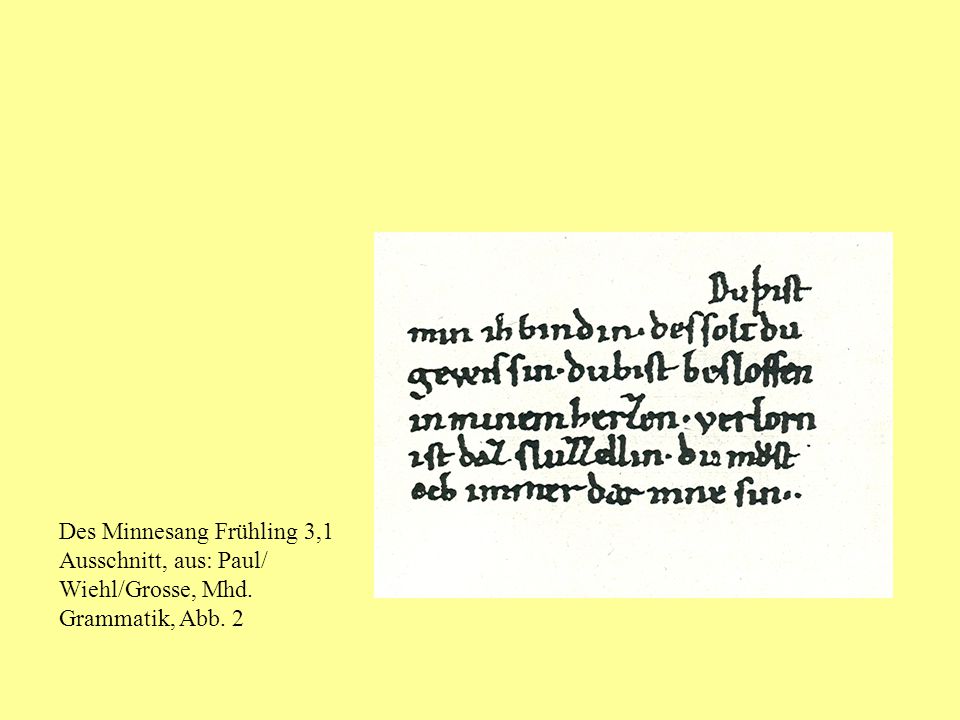 Du bist
min ih bin din. des solt du
gewis sin. du bist beslossen
in minem herzen. verlorn
ist daz sluzzellin. du muͦst
och immer dar inne sin..
Des Minnesang Frühling 3,1
Ausschnitt, aus: Paul/
Wiehl/Grosse, Mhd.
Grammatik, Abb. 2